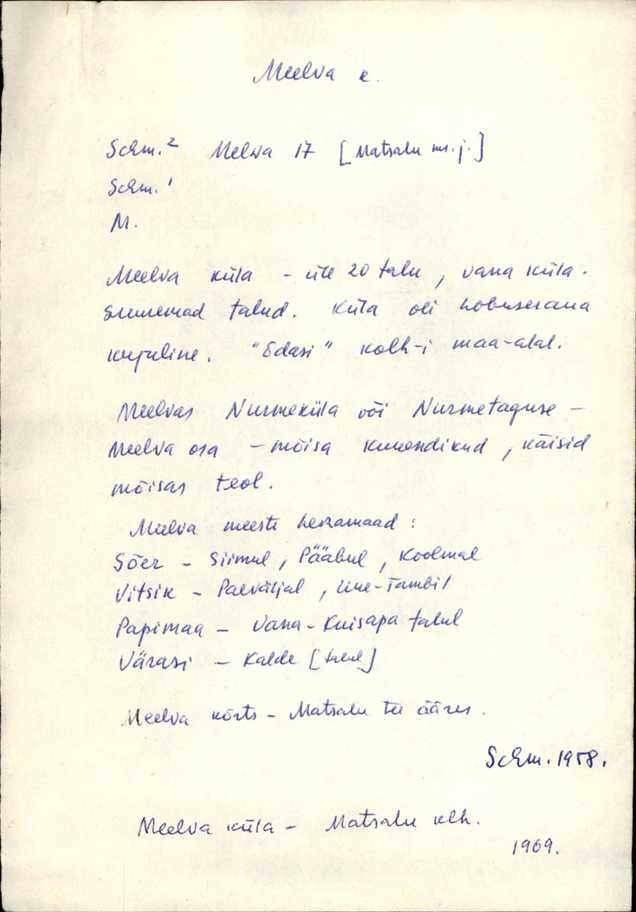 Meelva k.
Schm.² Melwa 17 [Matsalu ms. j.]
Schm.¹
M.
Meelva küla - üle 20 talu, vana küla.
Suuremad talud. Küla oli hobuseraua
kujuline. "Edasi" kolh-i maa-alal.
Meelvas Nurmeküla või Nurmetaguse -
Meelva osa - mõisa kuuendikud, käisid
mõisas teol.
Meelva meeste heinamaad:
Sõer - Siimul, Pääbul, Koolmal
Vitsik - Paeväljal, Uue-Tambil
Papimaa - Vana-Kuisapa talul
Värasi - Kalde [talul]
Meelva kõrts - Matsalu tee ääres.
Schm. 1958.
Meelva küla - Matsalu klh.
1969.